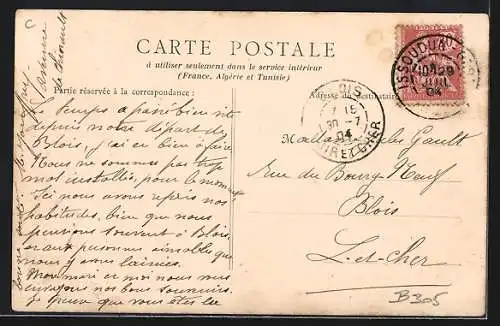 C
CARTE POSTALE
à utiliser seulement dans le service intérieur
(France, Algérie et Tunisie)
Partie réservée à la correspondance:
Adresse du destinataire
ISSOUDUN
29
04
30 -7
04
LOIR ET CHER
Le temps a passé bien vite
depuis notre départ de
Blois, j'ai eu bien à faire
Nous ne sommes pas trop
mal installés, pour le moment
Ici nous avons repris nos
habitudes, bien que nous
pensions souvent à Blois,
et aux personnes aimables que
nous y avons laissées.
Mon mari et moi nous vous
envoyons nos bons souvenirs.
Je pense que vous êtes
Gault
rue du Bourg Neuf
Blois
L-et-cher
B305